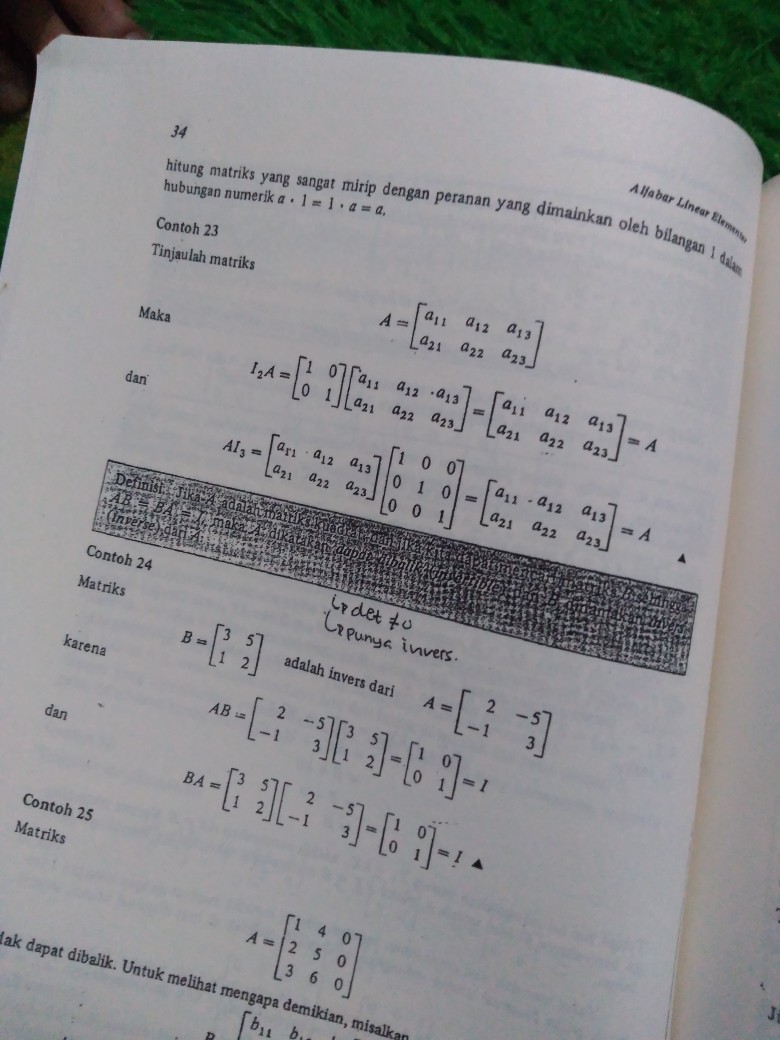 34
Aljabar Linear Elementer
hitung matriks yang sangat mirip dengan peranan yang dimainkan oleh bilangan 1 dalam
hubungan numerik a · 1 = 1 · a = a.
Contoh 23
Tinjaulah matriks
A = [a11 a12 a13
a21 a22 a23]
Maka
I2A = [1 0
0 1] [a11 a12 a13
a21 a22 a23] = [a11 a12 a13
a21 a22 a23] = A
dan
AI3 = [a11 a12 a13
a21 a22 a23] [1 0 0
0 1 0
0 0 1] = [a11 a12 a13
a21 a22 a23] = A ▲
Definisi. Jika A adalah matriks kuadrat, dan jika kita dapat mencari matriks B sehingga
AB = BA = I, maka A dikatakan dapat dibalik (invertible) dan B dinamakan invers
(inverse) dari A.
↳ det ≠ 0
↳ punya invers.
Contoh 24
Matriks
B = [3 5
1 2] adalah invers dari A = [2 -5
-1 3]
karena
AB = [2 -5
-1 3] [3 5
1 2] = [1 0
0 1] = I
dan
BA = [3 5
1 2] [2 -5
-1 3] = [1 0
0 1] = I ▲
Contoh 25
Matriks
A = [1 4 0
2 5 0
3 6 0]
dak dapat dibalik. Untuk melihat mengapa demikian, misalkan
b11